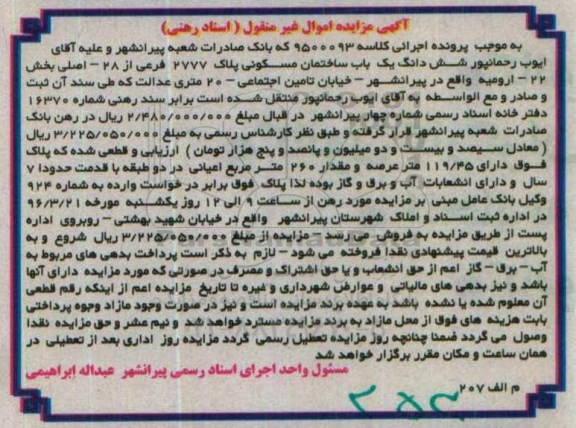 آگهی مزایده اموال غیر منقول ( اسناد رهنی)
به موجب پرونده اجرائی کلاسه ۹۵۰۰۰۹۳ که بانک صادرات شعبه پیرانشهر و علیه آقای
ایوب رحمانپور شش دانگ یک باب ساختمان مسکونی پلاک ۲۷۷۷ فرعی از ۲۸ - اصلی بخش
۲۲ - ارومیه واقع در پیرانشهر - خیابان تامین اجتماعی - ۲۰ متری عدالت که طی سند آن ثبت
و صادر و مع الواسطه به آقای ایوب رحمانپور منتقل شده است برابر سند رهنی شماره ۱۶۳۷۰
دفتر خانه اسناد رسمی شماره چهار پیرانشهر در قبال مبلغ ۲/۴۸۰/۰۰۰/۰۰۰ ریال در رهن بانک
صادرات شعبه پیرانشهر قرار گرفته و طبق نظر کارشناس رسمی به مبلغ ۳/۲۲۵/۰۵۰/۰۰۰ ریال
( معادل سیصد و بیست و دو میلیون و پانصد و پنج هزار تومان ) ارزیابی و قطعی شده که پلاک
فوق دارای ۱۱۹/۴۵ متر عرصه و مقدار ۲۶۰ متر مربع اعیانی در دو طبقه با قدمت حدودا ۷
سال و دارای انشعابات آب و برق و گاز بوده لذا پلاک فوق برابر در خواست وارده به شماره ۹۲۴
وکیل بانک عامل مبنی بر مزایده مورد رهن از ساعت ۹ الی ۱۲ روز یکشنبه مورخه ۹۶/۳/۲۱
در اداره ثبت اسناد و املاک شهرستان پیرانشهر واقع در خیابان شهید بهشتی - روبروی اداره
پست از طریق مزایده به فروش می رسد - مزایده از مبلغ ۳/۲۲۵/۰۵۰/۰۰۰ ریال شروع و به
بالاترین قیمت پیشنهادی نقدا فروخته می شود - لازم به ذکر است پرداخت بدهی های مربوط به
آب - برق - گاز اعم از حق انشعاب و یا حق اشتراک و مصرف در صورتی که مورد مزایده دارای آنها
باشد و نیز بدهی های مالیاتی و عوارض شهرداری و غیره تا تاریخ مزایده اعم از اینکه رقم قطعی
آن معلوم شده یا نشده باشد به عهده برنده مزایده است و نیز در صورت وجود مازاد وجوه پرداختی
بابت هزینه های فوق از محل مازاد به برنده مزایده مسترد خواهد شد و نیم عشر و حق مزایده نقدا
وصول می گردد ضمنا چنانچه روز مزایده تعطیل رسمی گردد مزایده روز اداری بعد از تعطیلی در
همان ساعت و مکان مقرر برگزار خواهد شد
مسئول واحد اجرای اسناد رسمی پیرانشهر عبداله ابراهیمی
م الف ۲۰۷